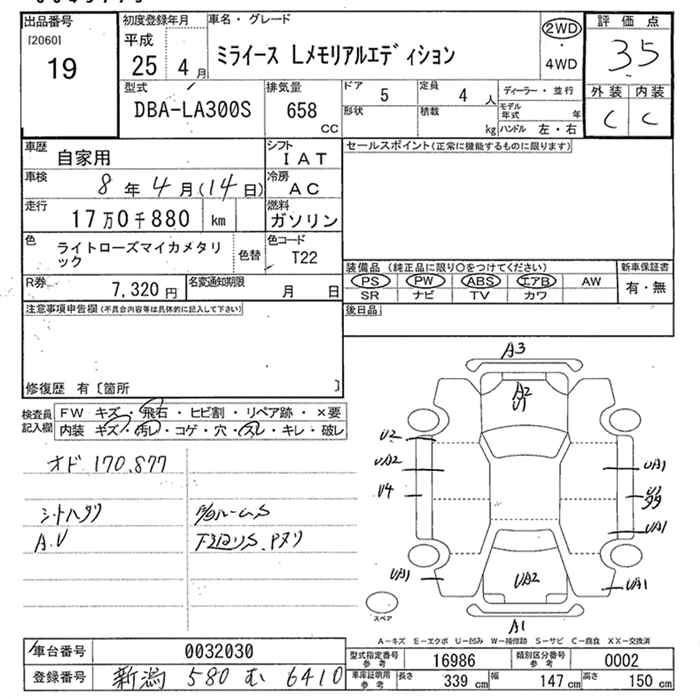 出品番号
[2060]
19
初度登録年月
平成
25 4月
車名・グレード
ミライース Lメモリアルエディション
2WD
・
4WD
評価点
3.5
外装 内装
C C
型式
DBA-LA300S
排気量
658
CC
ドア
5
定員
4人
形状
積載
kg
ディーラー・並行
モデル年式 年
ハンドル 左・右
車歴
自家用
シフト
IAT
車検
8年4月(14日)
冷房
AC
走行
17万0千880 km
燃料
ガソリン
色
ライトローズマイカメタリック
色替
色コード
T22
R券
7,320円
名変通知期限
月 日
セールスポイント(正常に機能するものに限ります)
装備品 (純正品に限り○をつけてください)
PS PW ABS エアB AW
SR ナビ TV カワ
新車保証書
有・無
後日品
注意事項申告欄(不具合内容等は具体的に記入して下さい)
修復歴 有〔箇所 〕
検査員記入欄
FW キズ・飛石・ヒビ割・リペア跡・×要
内装 キズ・汚レ・コゲ・穴・スレ・キレ・破レ
オド 170,877
シートハタリ
A.V
下廻りS.パヌリ
A3
A2
U1
U2
UA2
U4
UA1
UA1
UA1
UA2
UA1
A1
スペア
A-キズ E-エクボ U-凹み W-補修跡 S-サビ C-腐食 XX-交換済
車台番号
0032030
登録番号
新潟 580 む 6410
型式指定番号
参考
16986
類別区分番号
参考
0002
車庫証明用
参考
長さ
339 cm
幅
147 cm
高さ
150 cm